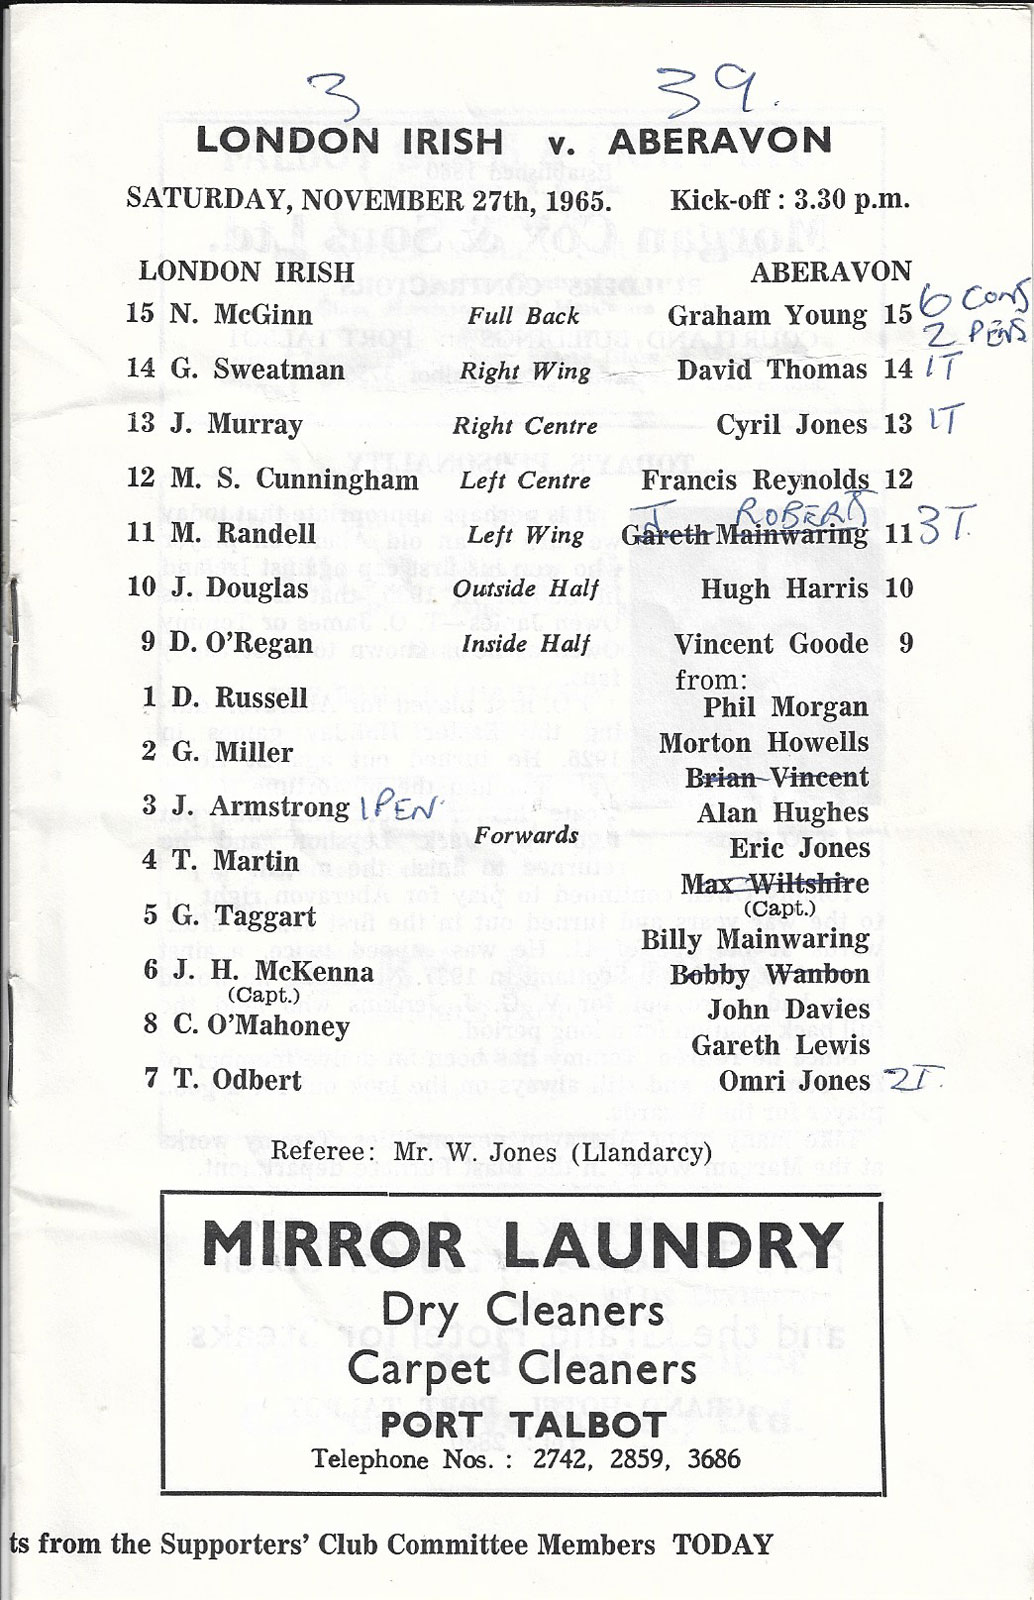 3 39.
LONDON IRISH v. ABERAVON
SATURDAY, NOVEMBER 27th, 1965. Kick-off : 3.30 p.m.
LONDON IRISH ABERAVON
15 N. McGinn Full Back Graham Young 15 6 CONS
2 PENS
14 G. Sweatman Right Wing David Thomas 14 1T
13 J. Murray Right Centre Cyril Jones 13 1T
12 M. S. Cunningham Left Centre Francis Reynolds 12
I ROBERTS
11 M. Randell Left Wing Gareth Mainwaring 11 3T.
10 J. Douglas Outside Half Hugh Harris 10
9 D. O'Regan Inside Half Vincent Goode 9
from:
1 D. Russell Phil Morgan
2 G. Miller Morton Howells
Brian Vincent
3 J. Armstrong 1 PEN. Alan Hughes
Forwards
Eric Jones
4 T. Martin Max Wiltshire
(Capt.)
5 G. Taggart Billy Mainwaring
6 J. H. McKenna Bobby Wanbon
(Capt.)
John Davies
8 C. O'Mahoney Gareth Lewis
7 T. Odbert Omri Jones 2T.
Referee: Mr. W. Jones (Llandarcy)
MIRROR LAUNDRY
Dry Cleaners
Carpet Cleaners
PORT TALBOT
Telephone Nos. : 2742, 2859, 3686
ts from the Supporters' Club Committee Members TODAY